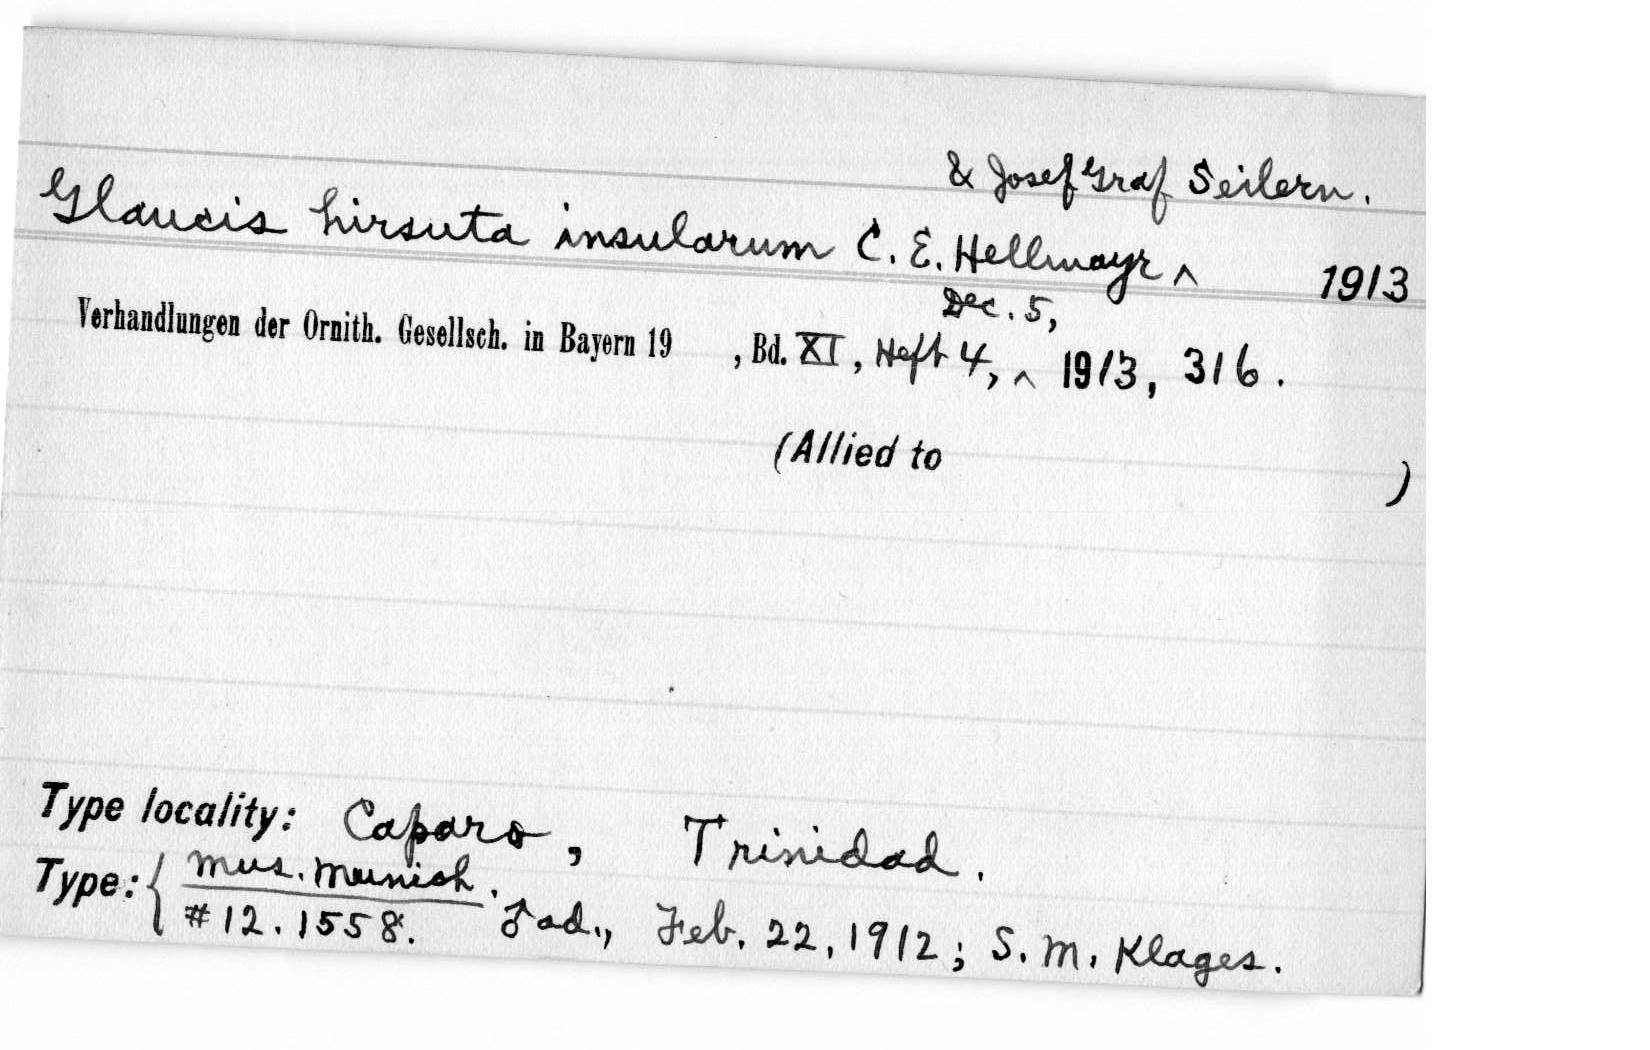 & Josef Graf Seilern.
Glaucis hirsuta insularum C. E. Hellmayr ^ 1913
Dec. 5,
Verhandlungen der Ornith. Gesellsch. in Bayern 19 , Bd. XI, Heft 4, ^ 1913, 316.
(Allied to )
Type locality: Caparo, Trinidad.
Type: { Mus. Munich.
#12.1558. ♂ ad., Feb. 22, 1912; S. M. Klages.